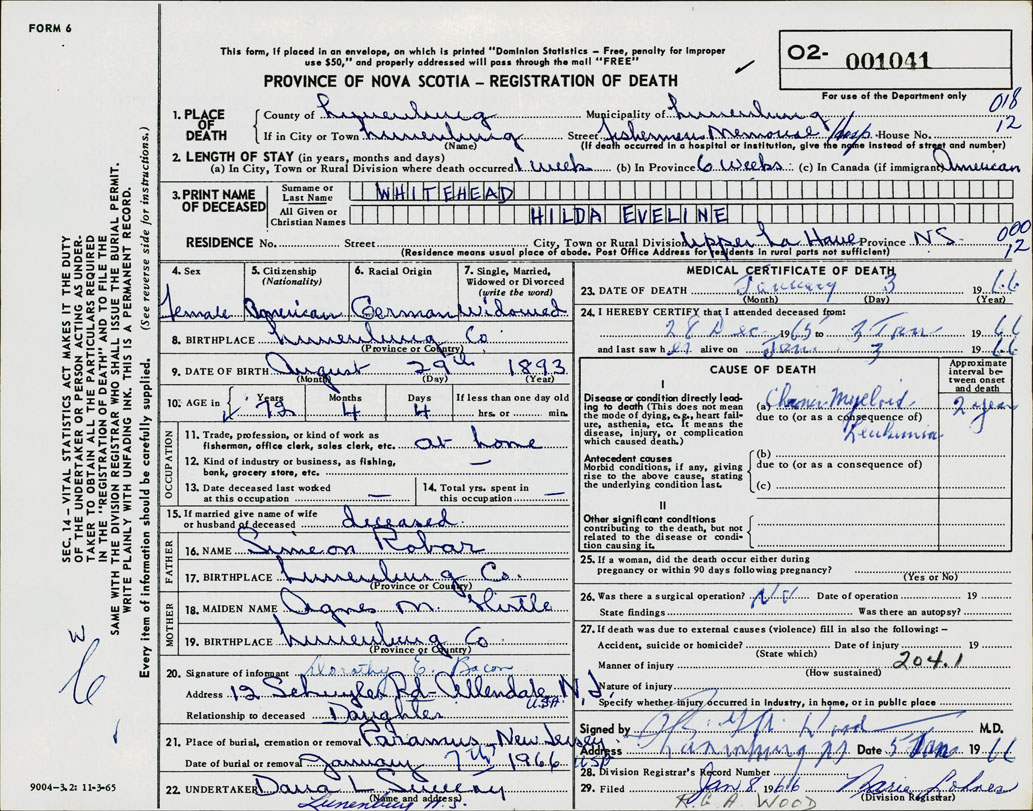 FORM 6
This form, if placed in an envelope, on which is printed "Dominion Statistics – Free, penalty for improper
use $50," and properly addressed will pass through the mail "FREE"
PROVINCE OF NOVA SCOTIA – REGISTRATION OF DEATH
O2- 001041
For use of the Department only
018
12
1. PLACE OF DEATH
County of Lunenburg Municipality of Lunenburg
If in City or Town Lunenburg Street Fishermens Memorial Hosp. House No.
(Name) (If death occurred in a hospital or institution, give the name instead of street and number)
2. LENGTH OF STAY (in years, months and days)
(a) In City, Town or Rural Division where death occurred 1 week (b) In Province 6 weeks (c) In Canada (if immigrant) American
3. PRINT NAME OF DECEASED
Surname or Last Name WHITEHEAD
All Given or Christian Names HILDA EVELINE
RESIDENCE No. Street City, Town or Rural Division Upper La Have Province N.S.
000
12
(Residence means usual place of abode. Post Office Address for residents in rural parts not sufficient)
4. Sex female
5. Citizenship (Nationality) American
6. Racial Origin German
7. Single, Married, Widowed or Divorced (write the word) Widowed
8. BIRTHPLACE Lunenburg Co
(Province or Country)
9. DATE OF BIRTH August 29th 1893
(Month) (Day) (Year)
10. AGE in Years 72 Months 4 Days 4 If less than one day old hrs. or min.
OCCUPATION
11. Trade, profession, or kind of work as
fisherman, office clerk, sales clerk, etc. at home
12. Kind of industry or business, as fishing,
bank, grocery store, etc. —
13. Date deceased last worked
at this occupation —
14. Total yrs. spent in
this occupation —
15. If married give name of wife
or husband of deceased deceased
FATHER
16. NAME Simeon Robar
17. BIRTHPLACE Lunenburg Co.
(Province or Country)
MOTHER
18. MAIDEN NAME Agnes M. Hirtle
19. BIRTHPLACE Lunenburg Co
(Province or Country)
20. Signature of informant Dorothy E. Bacon
Address 12 Schuyler Rd - Allendale, N.J.
USA
Relationship to deceased Daughter
21. Place of burial, cremation or removal Paramus, New Jersey
Date of burial or removal January 7th, 1966 USA
22. UNDERTAKER Dana L Sweeny
(Name and address)
Lunenburg N.S.
MEDICAL CERTIFICATE OF DEATH
23. DATE OF DEATH January 3 1966
(Month) (Day) (Year)
24. I HEREBY CERTIFY that I attended deceased from:
28 Dec 1965 to 3 Jan 1966
and last saw her alive on Jan 3 1966
CAUSE OF DEATH
Approximate interval between onset and death
I
Disease or condition directly leading to death (This does not mean the mode of dying, e.g., heart failure, asthenia, etc. It means the disease, injury, or complication which caused death.)
(a) Myeloid 2 year
due to (or as a consequence of)
Leukemia
Antecedent causes
Morbid conditions, if any, giving rise to the above cause, stating the underlying condition last.
(b)
due to (or as a consequence of)
(c)
II
Other significant conditions
contributing to the death, but not related to the disease or condition causing it.
25. If a woman, did the death occur either during
pregnancy or within 90 days following pregnancy?
(Yes or No)
26. Was there a surgical operation? No Date of operation 19
State findings Was there an autopsy?
27. If death was due to external causes (violence) fill in also the following: –
Accident, suicide or homicide? Date of injury 19
(State which)
Manner of injury 204.1
(How sustained)
Nature of injury
Specify whether injury occurred in industry, in home, or in public place
Signed by Wood M.D.
Address Lunenburg NS Date 5 Jan 1966
28. Division Registrar's Record Number
29. Filed Jan 8 1966 Marie Lohnes
(Division Registrar)
R.G.A. WOOD
SEC. 14 – VITAL STATISTICS ACT MAKES IT THE DUTY
OF THE UNDERTAKER OR PERSON ACTING AS UNDER-
TAKER TO OBTAIN ALL THE PARTICULARS REQUIRED
IN THE "REGISTRATION OF DEATH" AND TO FILE THE
SAME WITH THE DIVISION REGISTRAR WHO SHALL ISSUE THE BURIAL PERMIT.
WRITE PLAINLY WITH UNFADING INK. THIS IS A PERMANENT RECORD.
Every item of information should be carefully supplied. (See reverse side for instructions.)
W
9004–3.2: 11-3-65